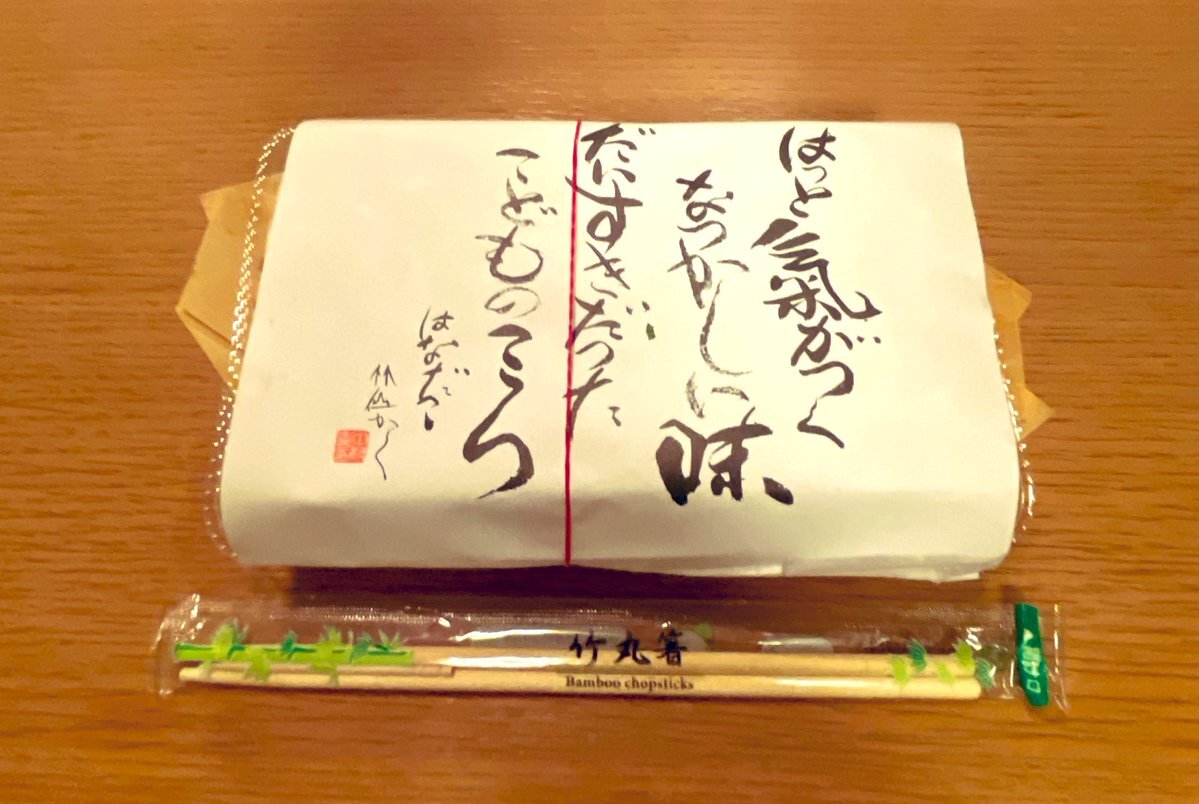 はっと氣がつく
なつかしい味
だいすきだった
こどものころ
はなだい
竹丸箸
Bamboo chopsticks